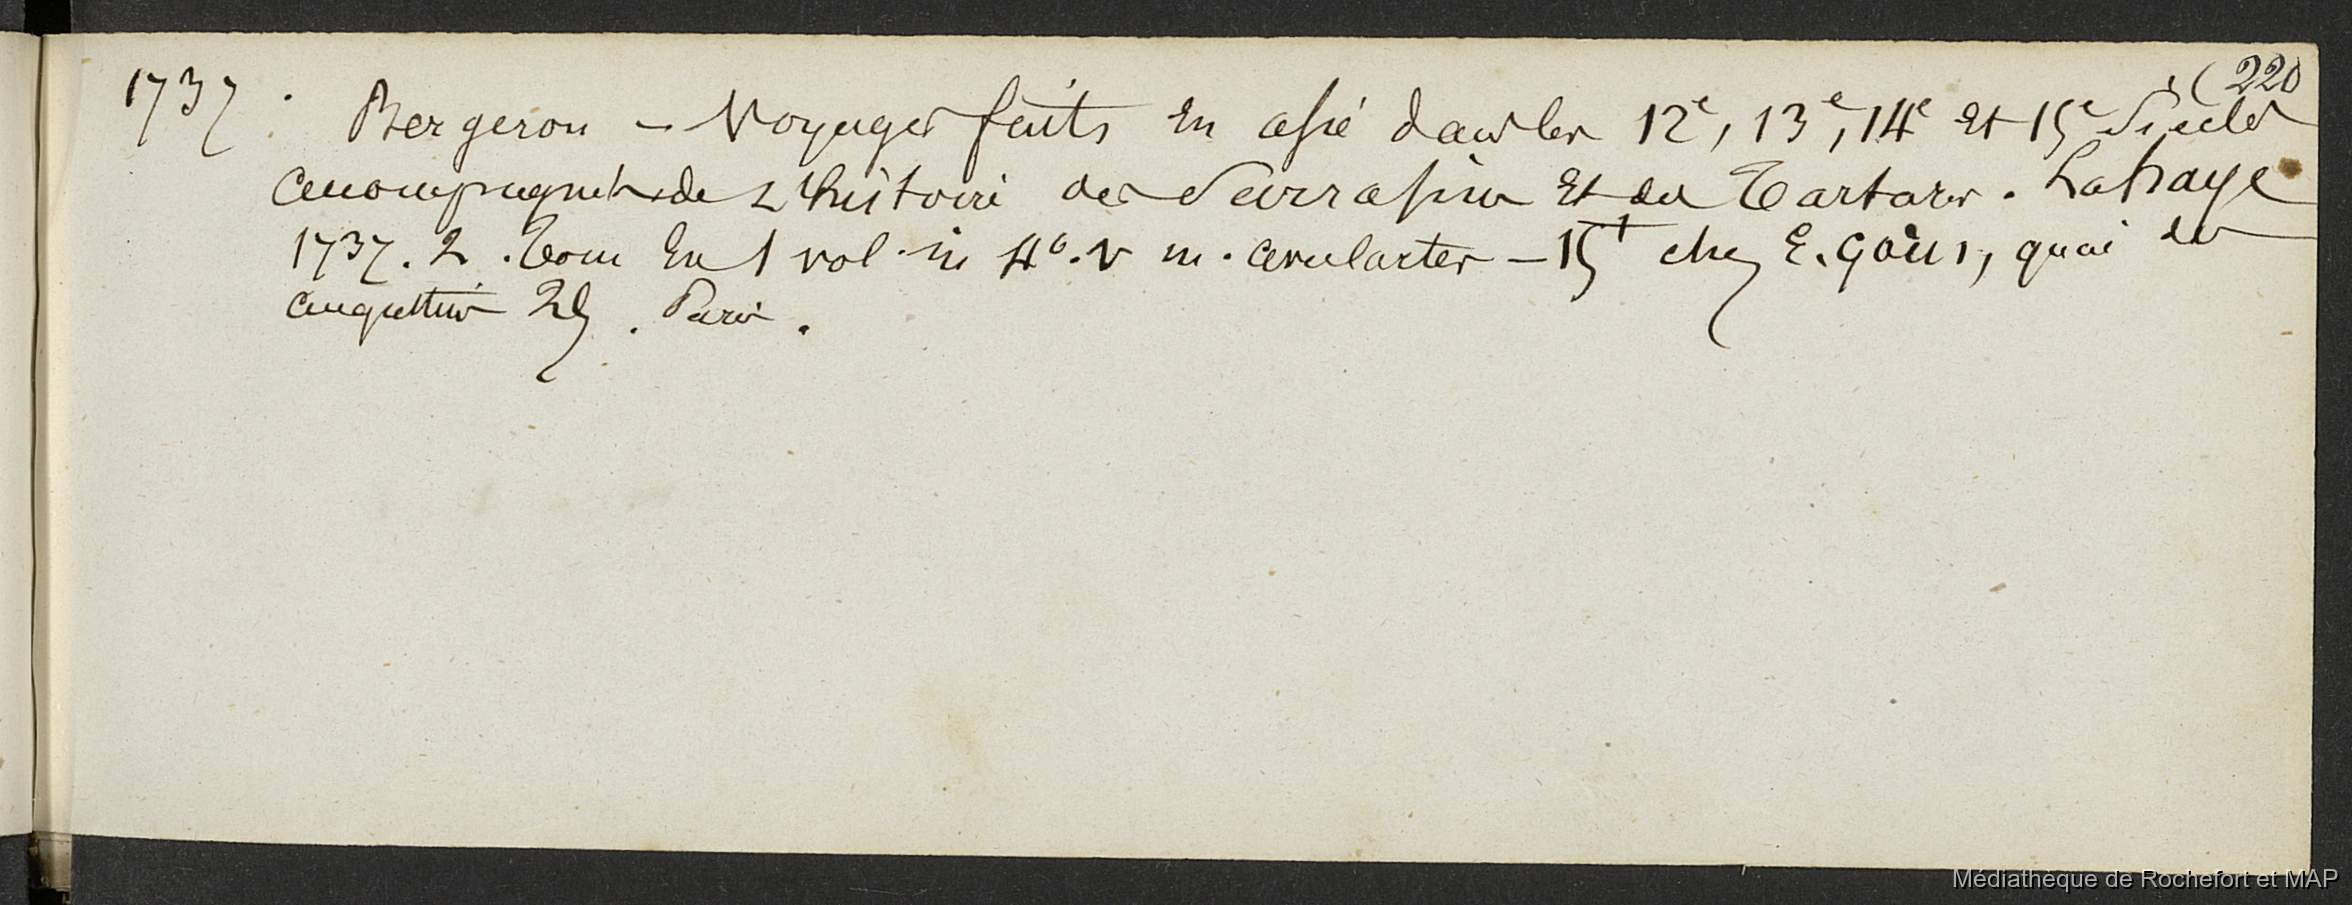 220
1737. Bergeron – Voyages faits en asie dans les 12e, 13e, 14e et 15e siècles
accompagnés de L'histoire des Sarrasins et des Tartares. La haye
1737. 2. tom en 1 vol. in 4°. v m. avec cartes – 15 f chez E. Goüin, quai des
augustins 25. Paris.
Médiathèque de Rochefort et MAP